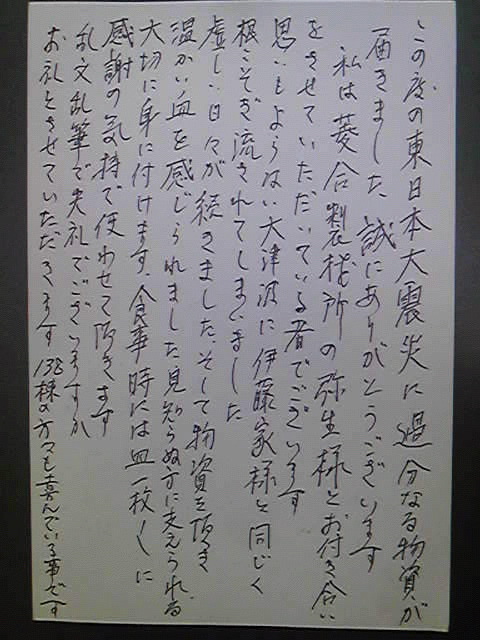 この度の東日本大震災に過分なる物資が
届きました 誠にありがとうございます
私は菱合製材所の弥生様とお付き合い
をさせていただいている者でございます
思いもよらない大津波に伊藤家様と同じく
根こそぎ流されてしまいました
虚しい日々が続きました、そして物資を頂き
温かい血を感じられました 見知らぬ方に支えられる
大切に身に付けます、食事時には皿一枚一枚に
感謝の気持で使わせて頂きます
乱文乱筆で失礼でございますが
お礼とさせていただきます 138棟の方々も喜んでいる事です